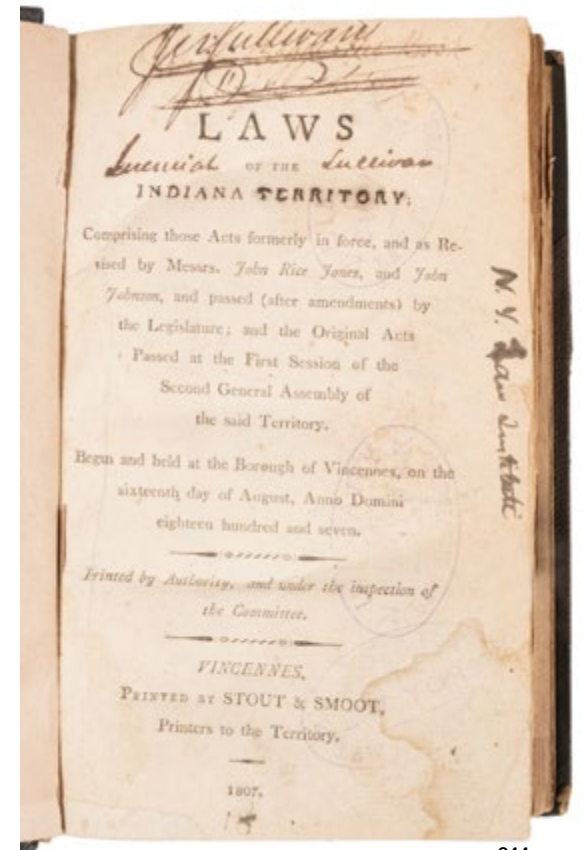 Jer Sullivan
LAWS
Jeremiah OF THE Sullivan
INDIANA TERRITORY;
Comprising those Acts formerly in force, and as Re-
vised by Messrs. John Rice Jones, and John
Johnson, and passed (after amendments) by
the Legislature; and the Original Acts
Passed at the First Session of the
Second General Assembly of
the said Territory.
Begun and held at the Borough of Vincennes, on the
sixteenth day of August, Anno Domini
eighteen hundred and seven.
Printed by Authority, and under the inspection of
the Committee.
VINCENNES,
PRINTED BY STOUT & SMOOT,
Printers to the Territory.
1807.
N. Y. Law Institute